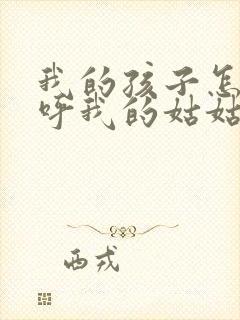 我的孩子怎
呼我的姑姑
西戎